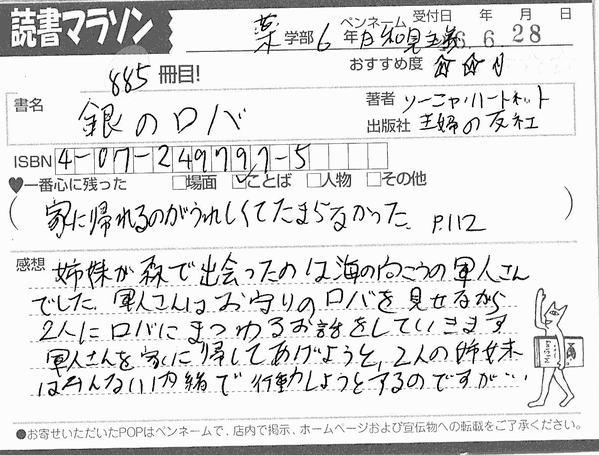 読書マラソン
薬学部 6年 ペンネーム 日和見主義 受付日 6年 6月 28日
885冊目!
おすすめ度 ☆☆
書名 銀のロバ
著者 ソーニャ・ハートネット
出版社 主婦の友社
ISBN 4-07-249797-5
♥一番心に残った □場面 ☑ことば □人物 □その他
(家に帰れるのがうれしくてたまらなかった。 P.112)
感想 姉妹が森で出会ったのは海の向こうの軍人さん
でした。軍人さんはお守りのロバを見せながら
2人にロバにまつわるお話をしていきます
軍人さんを家に帰してあげようと、2人の姉妹
はみんなに内緒で行動しようとするのですが…
●お寄せいただいたPOPはペンネームで、店内で掲示、ホームページおよび宣伝物への転載をご了承ください。